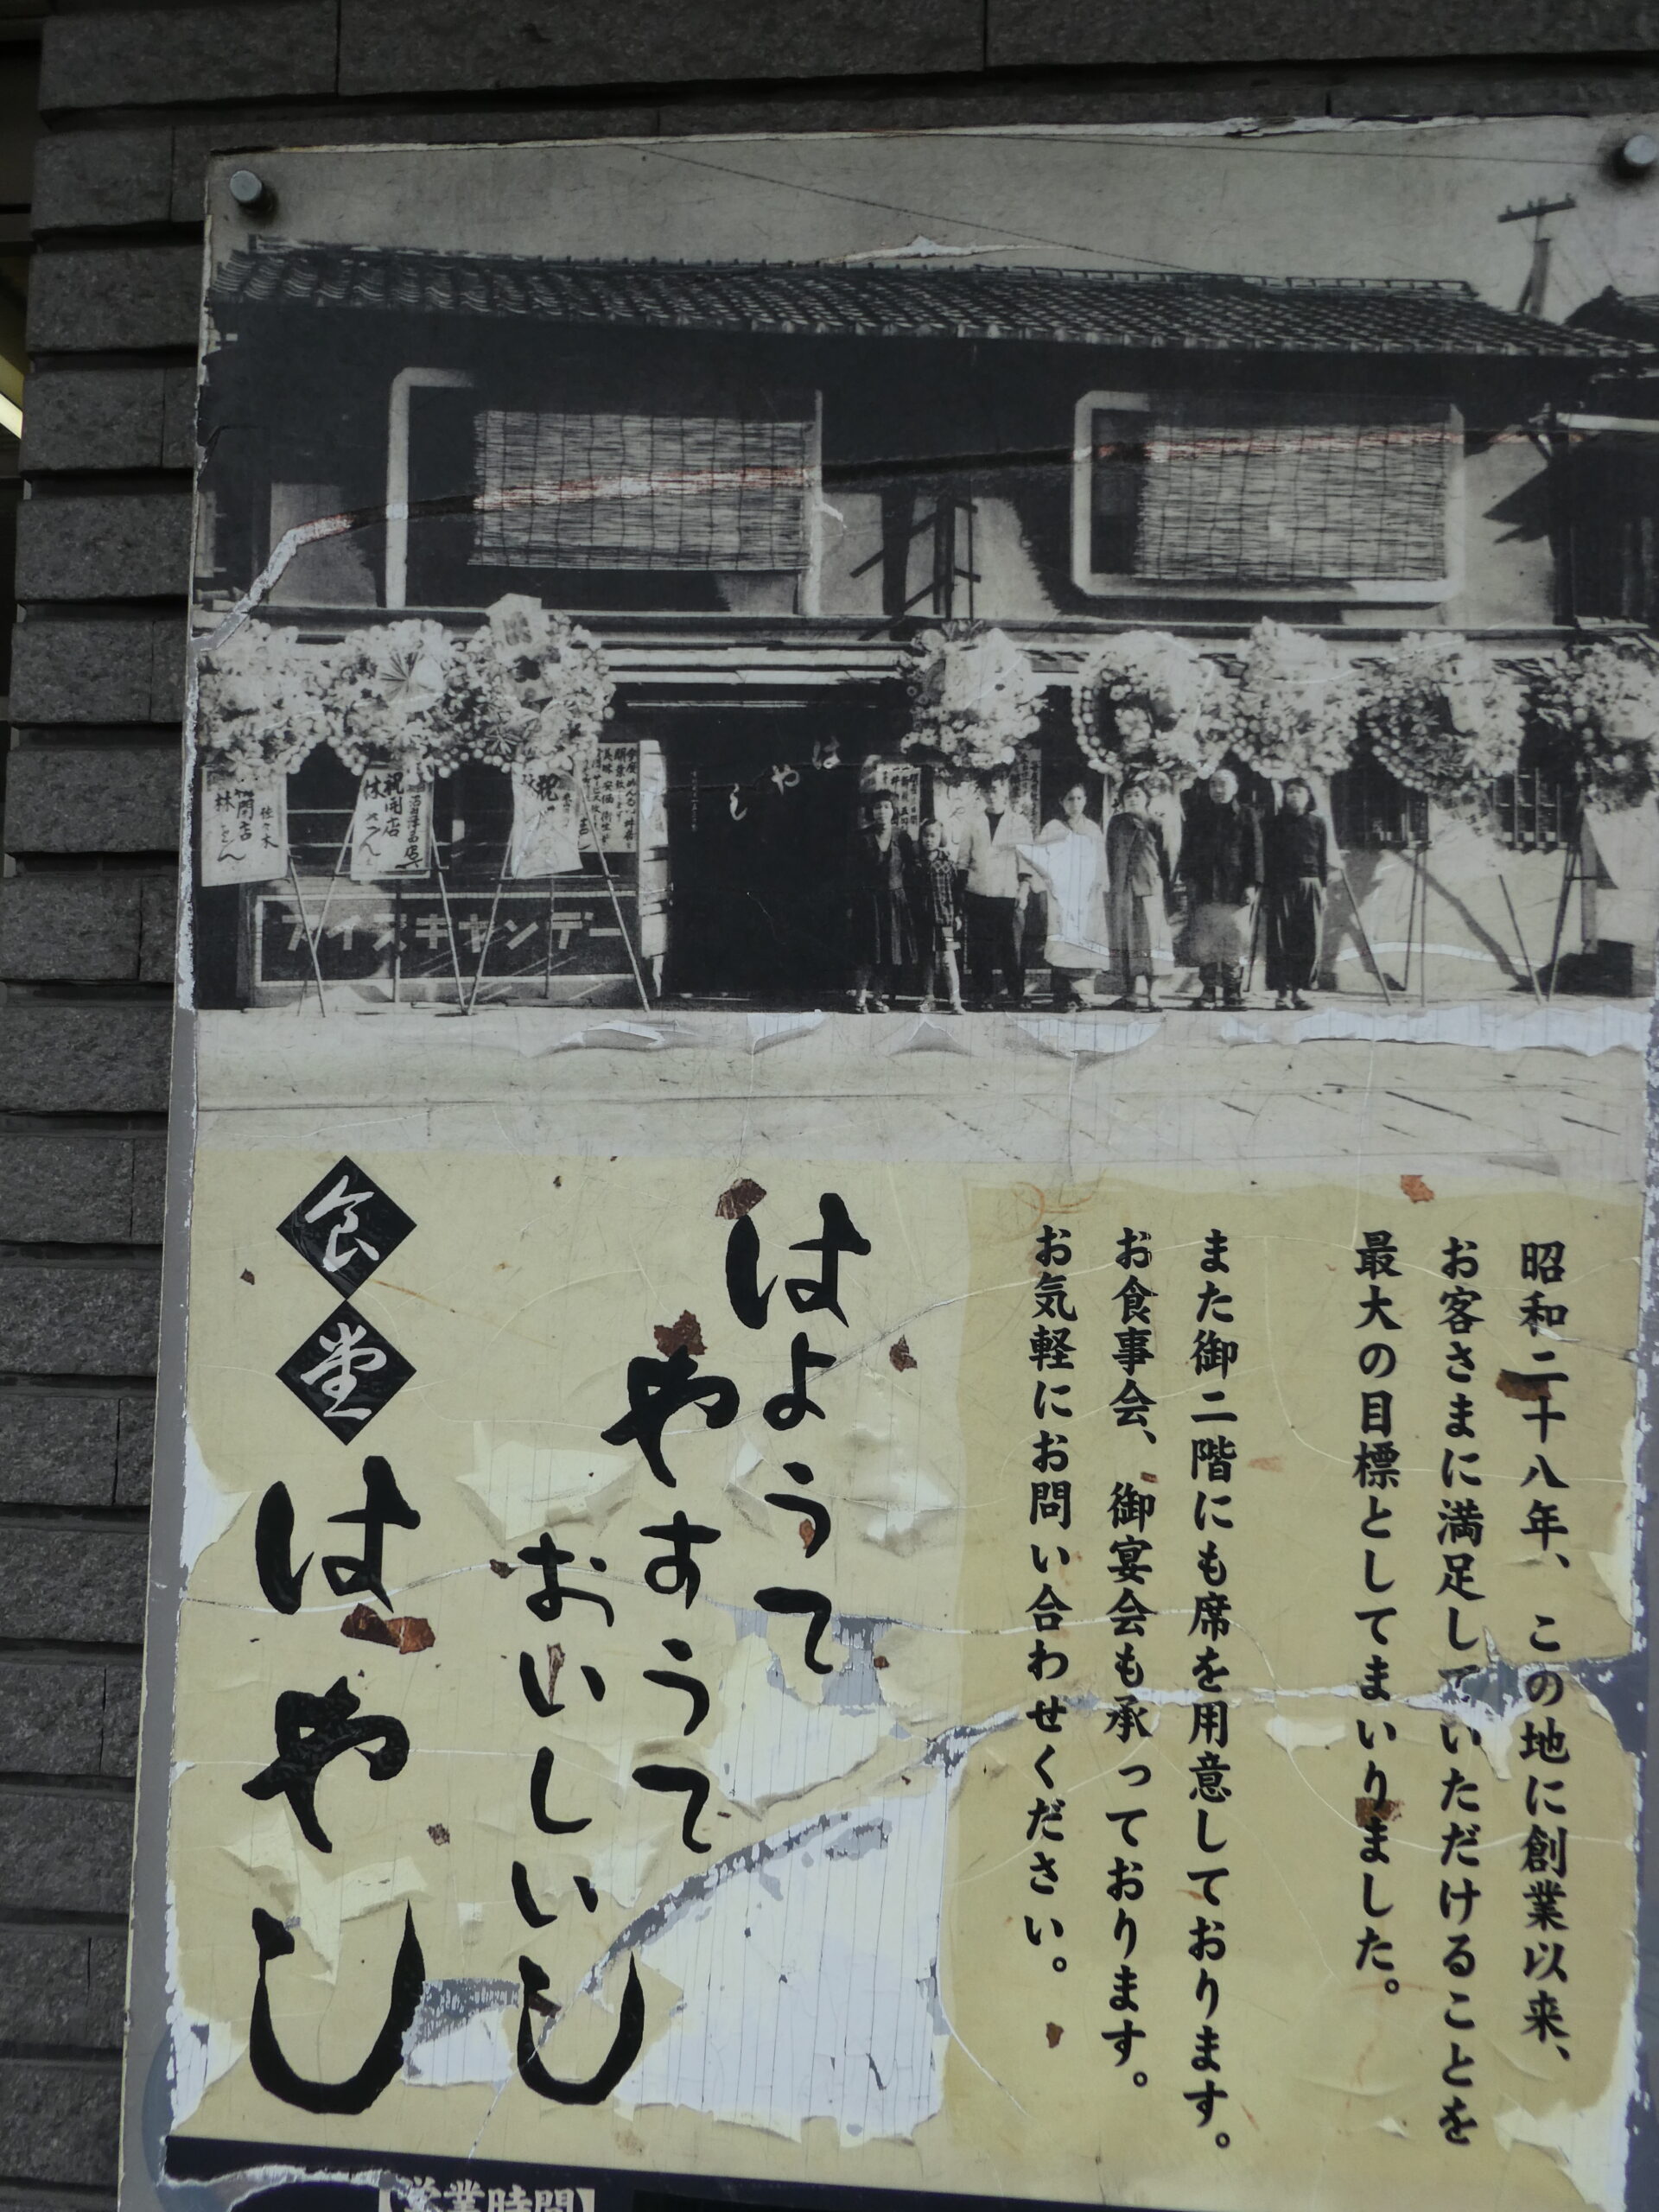 はやし
祝開店
林さん
アイスキャンデー
昭和二十八年、この地に創業以来、
お客さまに満足していただけることを
最大の目標としてまいりました。
また御二階にも席を用意しております。
お食事会、御宴会も承っております。
お気軽にお問い合わせください。
はようて
やすうて
おいしいし
食堂
はやし
【営業時間】